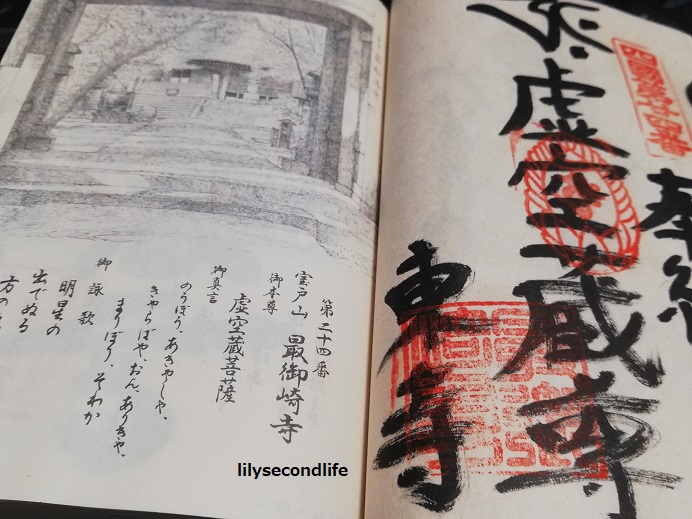 四國第廿四番
奉納
虚空蔵尊
東寺
第二十四番
室戸山 最御崎寺
御本尊
虚空蔵菩薩
御真言
のうぼう、あきゃしゃ、
きゃらばや、おん、ありきゃ、
まりぼり、そわか
御詠歌
明星の
出でぬる
方の
lilysecondlife